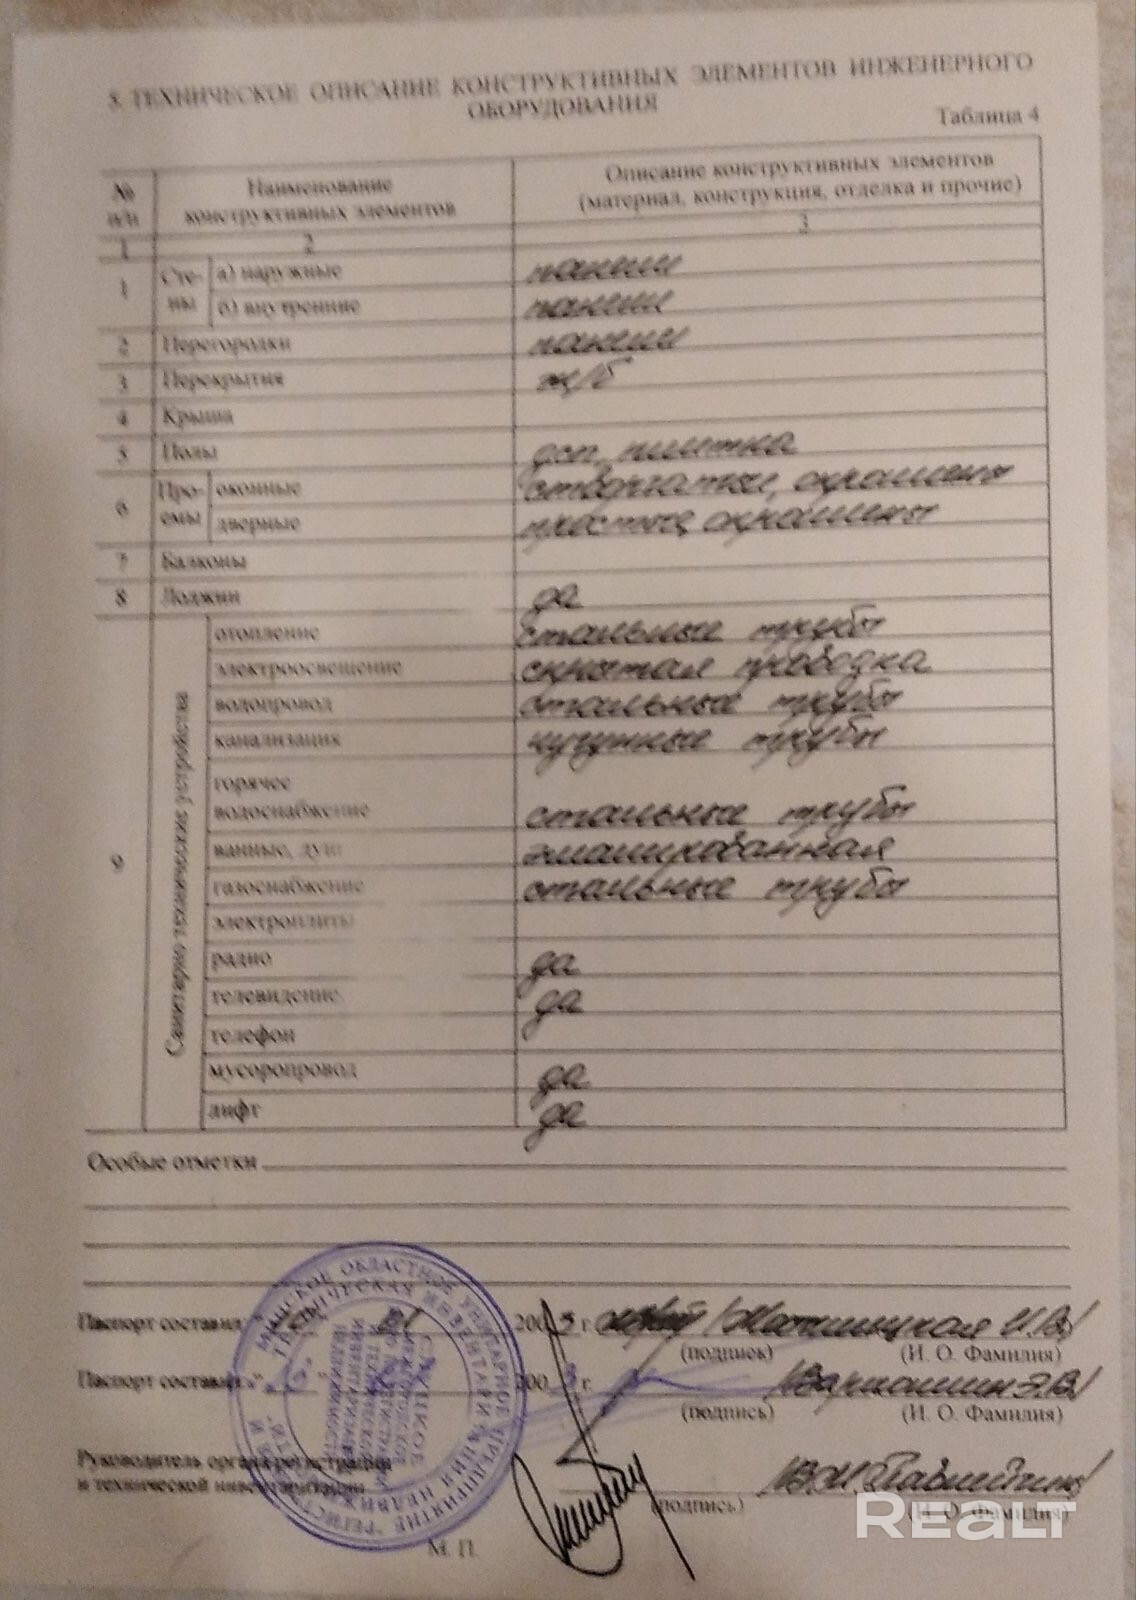 5. ТЕХНИЧЕСКОЕ ОПИСАНИЕ КОНСТРУКТИВНЫХ ЭЛЕМЕНТОВ ИНЖЕНЕРНОГО
ОБОРУДОВАНИЯ
Таблица 4
№ п/п
Наименование конструктивных элементов
Описание конструктивных элементов (материал, конструкция, отделка и прочие)
1 2 3
1 Сте-ны а) наружные панели
б) внутренние панели
2 Перегородки панели
3 Перекрытия ж/б
4 Крыша
5 Полы дсп, плитка
6 Про-емы оконные створчатые, окрашены
дверные простые, окрашены
7 Балконы
8 Лоджии да
9 Санитарно технические устройства
отопление стальные трубы
электроосвещение скрытая проводка
водопровод стальные трубы
канализация чугунные трубы
горячее
водоснабжение стальные трубы
ванные, душ эмалированная
газоснабжение стальные трубы
электроплиты
радио да
телевидение да
телефон
мусоропровод да
лифт да
Особые отметки
Паспорт составил 2003 г.
(подпись) (И. О. Фамилия)
Паспорт составил 200 г.
(подпись) (И. О. Фамилия)
Руководитель органа регистрации
и технической инвентаризации
(подпись) (И. О. Фамилия)
М. П.
МИНСКОЕ ОБЛАСТНОЕ УНИТАРНОЕ ПРЕДПРИЯТИЕ
ТЕХНИЧЕСКАЯ ИНВЕНТАРИЗАЦИЯ НЕДВИЖИМОСТИ
СЛУЦКОЕ
REALT